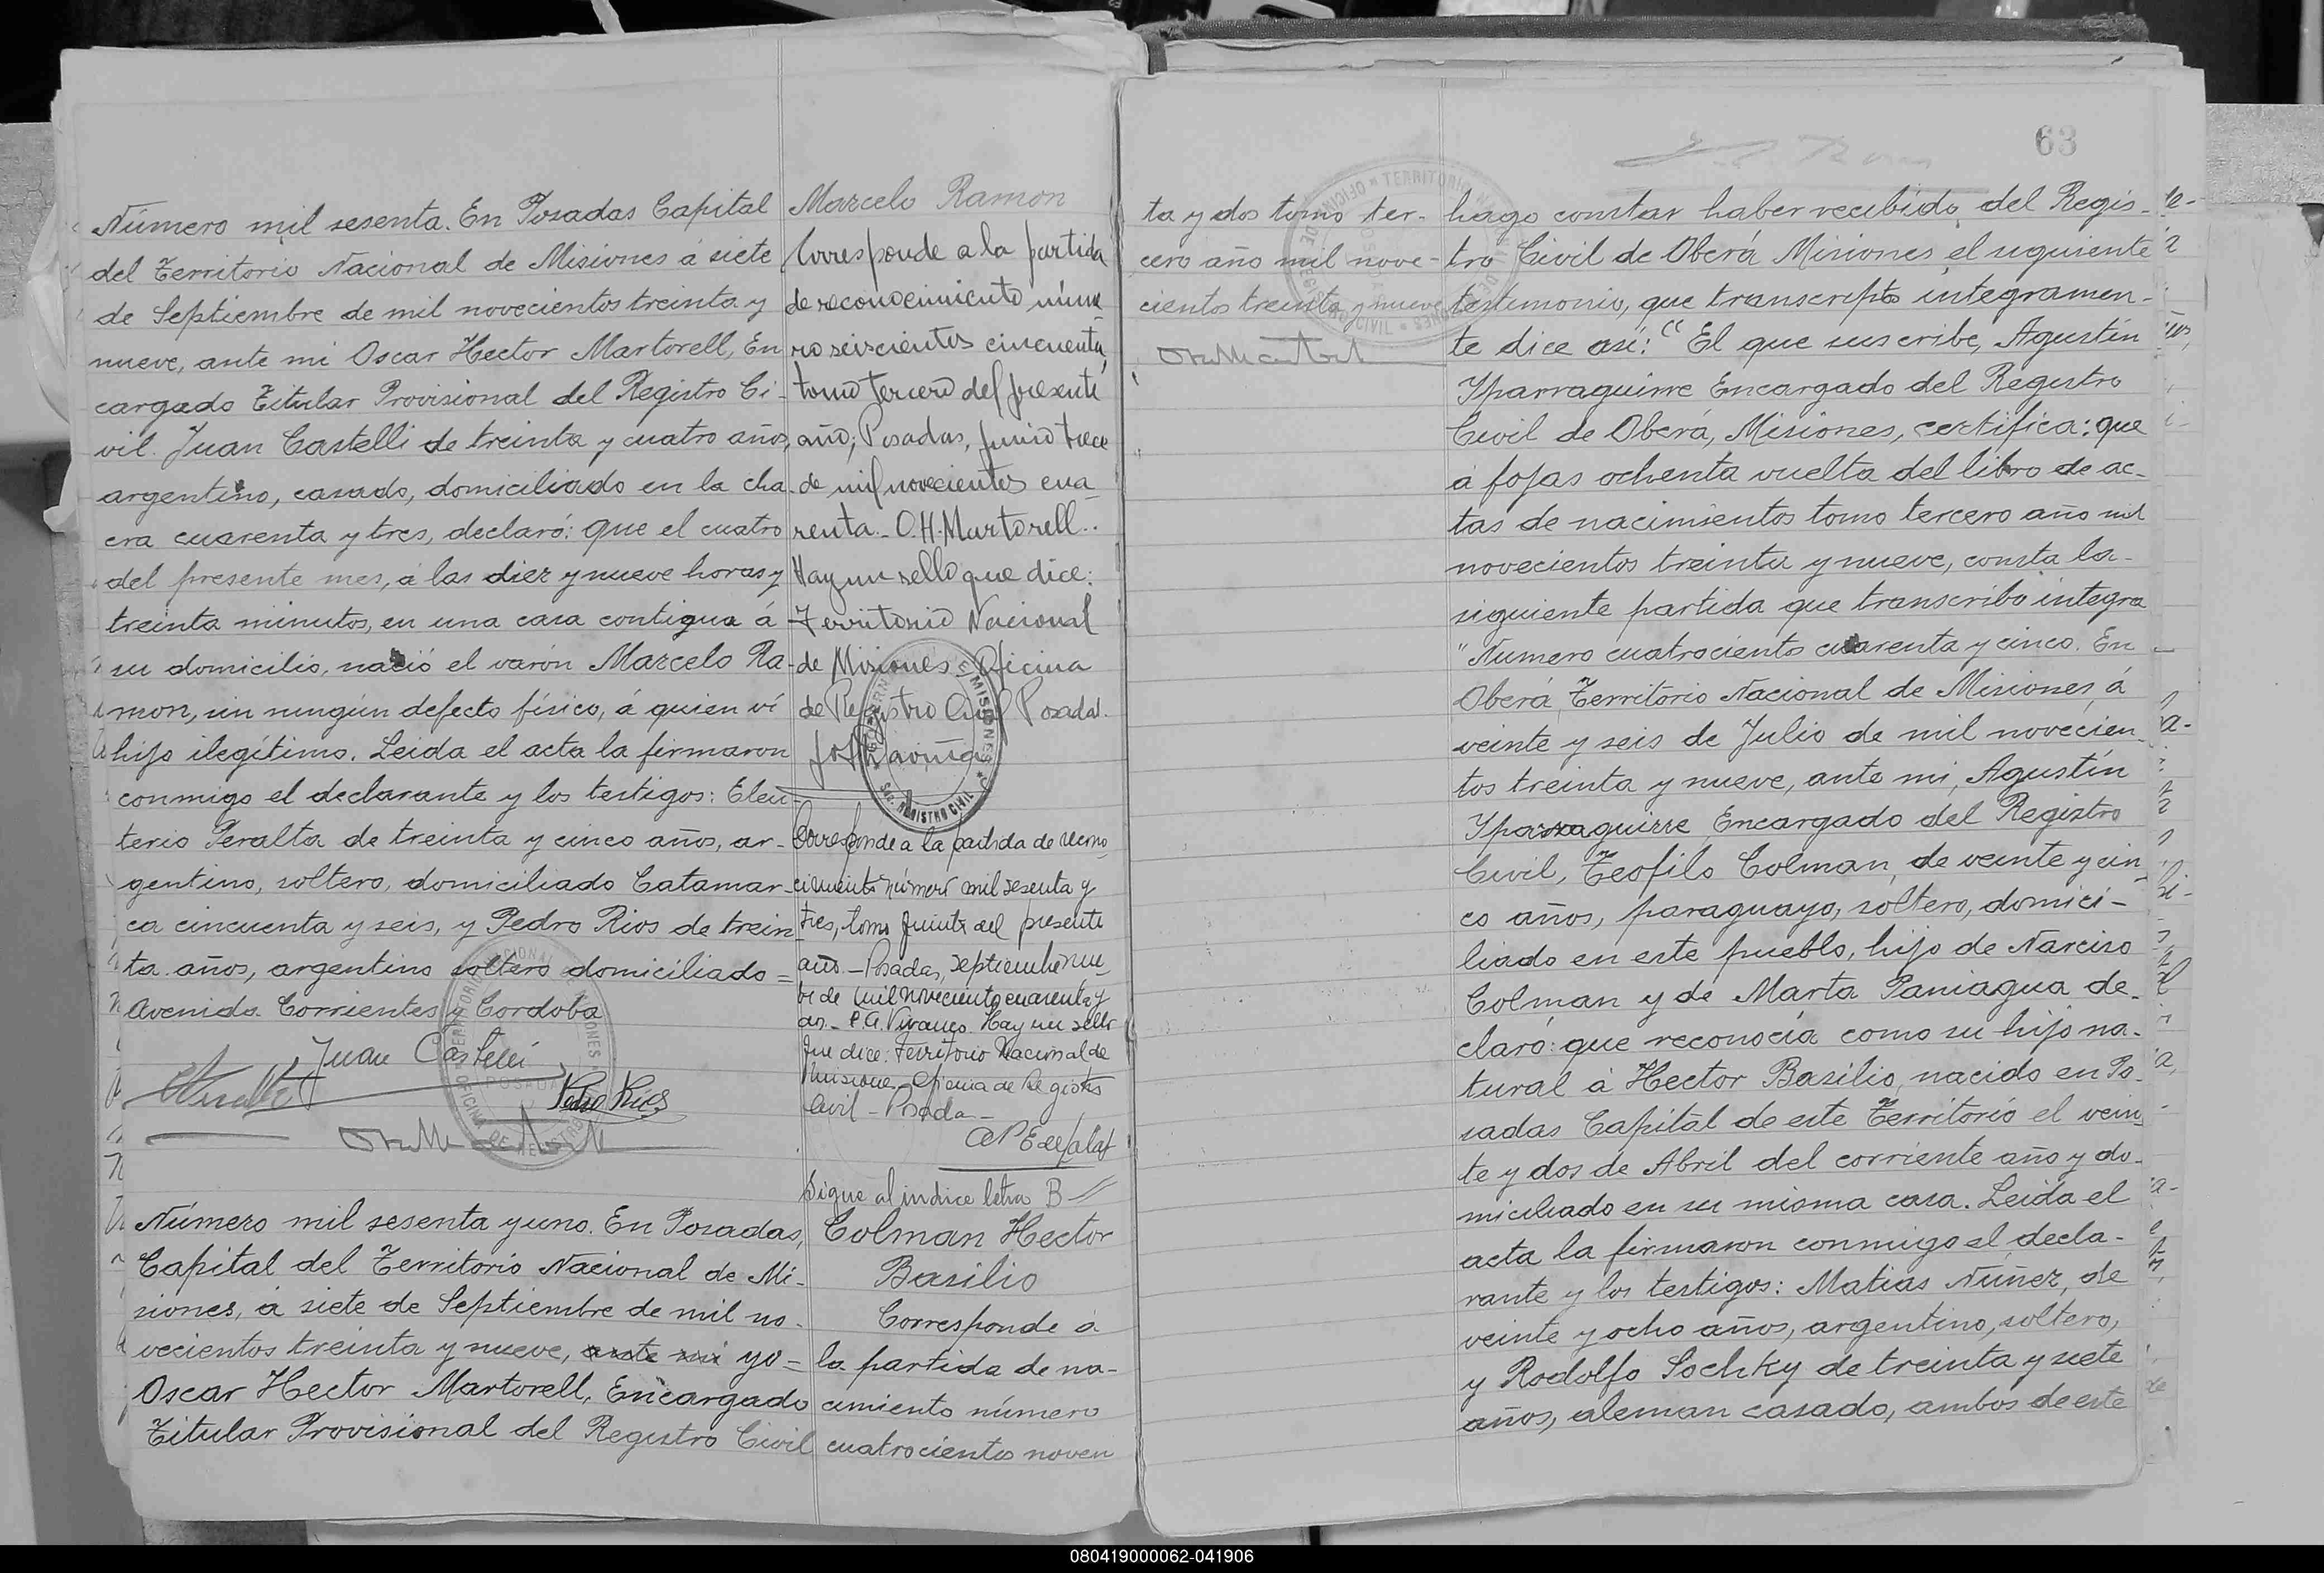 Número mil sesenta. En Posadas Capital
del Territorio Nacional de Misiones á siete
de Septiembre de mil novecientos treinta y
nueve, ante mi Oscar Hector Martorell, En
cargado Titular Provisional del Registro Ci-
vil. Juan Castelli de treinta y cuatro años,
argentino, casado, domiciliado en la cha-
cra cuarenta y tres, declaró: que el cuatro
del presente mes, á las diez y nueve horas y
treinta minutos, en una casa contigua á
su domicilio, nació el varón Marcelo Ra-
mon, sin ningún defecto físico, á quien ví
hijo ilegítimo. Leida el acta la firmaron
conmigo el declarante y los testigos: Eleu-
terio Peralta de treinta y cinco años, ar-
gentino, soltero, domiciliado Catamar-
ca cincuenta y seis, y Pedro Rios de trein
ta años, argentino soltero domiciliado =
Avenida Corrientes y Cordoba
Juan Castelli
Pedro Rios
Marcelo Ramon
Corresponde a la partida
de reconocimiento núme
ro seiscientos cincuenta,
tomo tercero del presente
año; Posadas, junio trece
de mil novecientos cua-
renta.- O.H. Martorell.-
Hay un sello que dice:
Territorio Nacional
de Misiones Oficina
de Registro Civil Posadas.
Corresponde a la partida de recono-
cimiento número mil sesenta y
tres, tomo quinto del presente
año.- Posadas, septiembre nue
ve de mil novecientos cuarenta y
dos.- Hay un sello
que dice: Territorio Nacional de
Misiones Oficina de Registro
Civil - Posadas -
Sigue al indice letra B //
Número mil sesenta y uno. En Posadas,
Capital del Territorio Nacional de Mi-
siones, á siete de Septiembre de mil no-
vecientos treinta y nueve, ante mi yo =
Oscar Hector Martorell, Encargado
Titular Provisional del Registro Civil
Colman Hector
Basilio
Corresponde á
la partida de na-
cimiento número
cuatrocientos noven
ta y dos tomo ter-
cero año mil nove-
cientos treinta y nueve
63
hago constar haber recibido del Regis-
tro Civil de Oberá Misiones el siguiente
testimonio, que transcripto integramen-
te dice así: "El que suscribe, Agustín
Yparraguirre Encargado del Registro
Civil de Oberá, Misiones, certifica: que
á fojas ochenta vuelta del libro de ac-
tas de nacimientos tomo tercero año mil
novecientos treinta y nueve, consta la-
siguiente partida que transcribo integra
"Numero cuatrocientos cuarenta y cinco. En
Oberá, Territorio Nacional de Misiones, á
veinte y seis de Julio de mil novecien-
tos treinta y nueve, ante mi, Agustín
Yparraguirre Encargado del Registro
Civil, Teofilo Colman, de veinte y cin
co años, paraguayo, soltero, domici-
liado en este pueblo, hijo de Narciso
Colman y de Marta Paniagua de-
claró: que reconocía como su hijo na-
tural á Hector Basilio, nacido en Po-
sadas Capital de este Territorio el vein
te y dos de Abril del corriente año y do-
miciliado en su misma casa. Leida el
acta la firmaron conmigo el decla-
rante y los testigos: Matias Núñez, de
veinte y ocho años, argentino, soltero,
y Rodolfo Sochky de treinta y siete
años, aleman casado, ambos de este
080419000062-041906